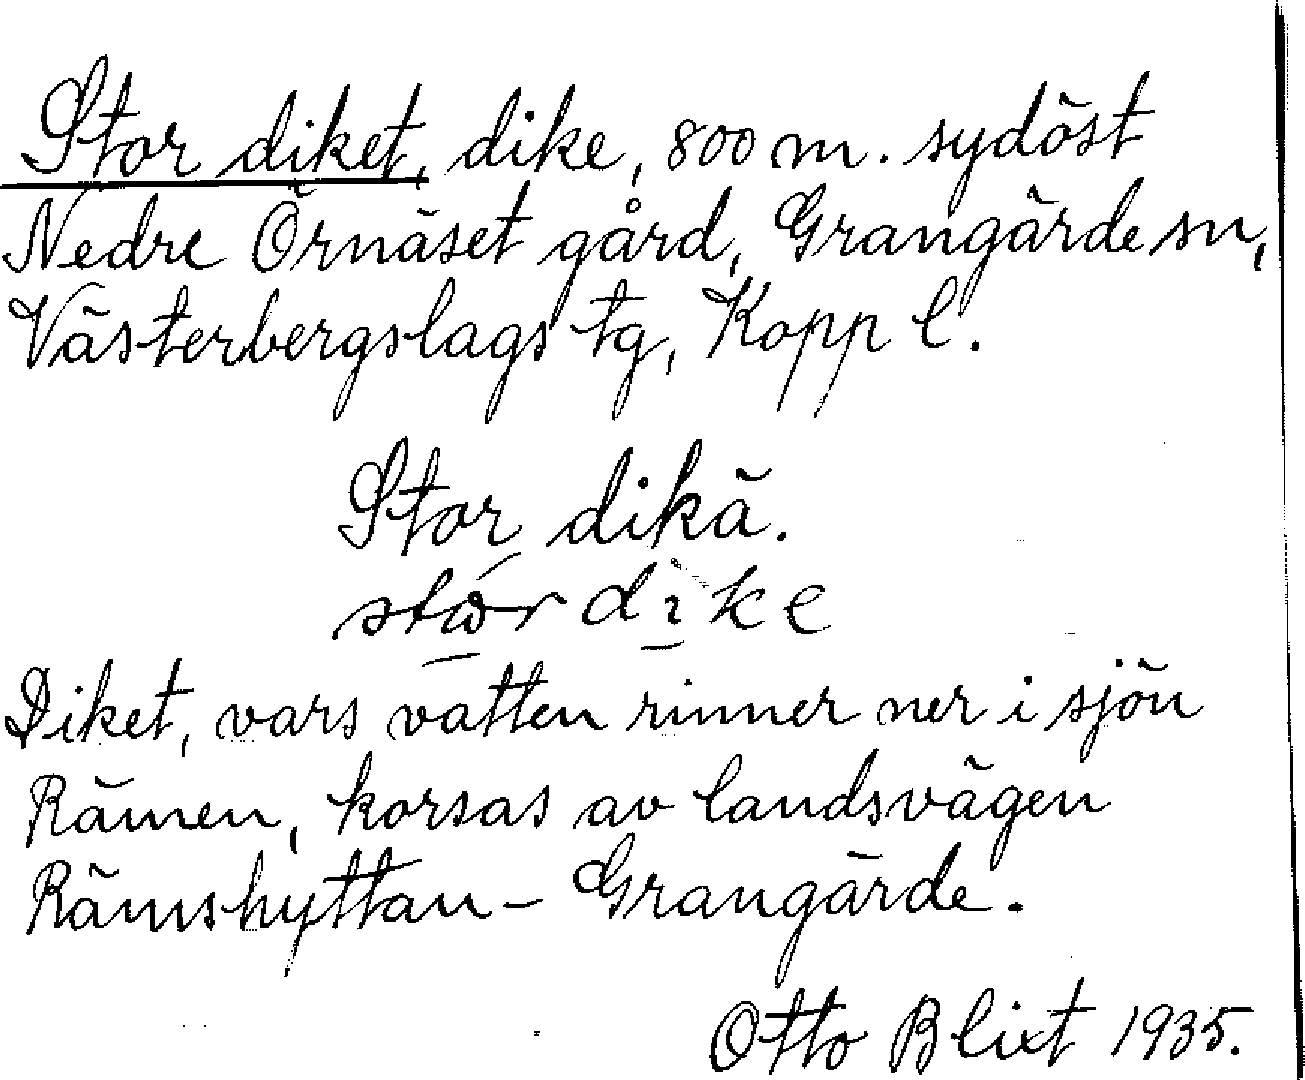 Stor diket, dike, 800 m. sydöst
Nedre Örnäset gård, Grangärde sn,
Västerbergslags tg, Kopp l.
Stor dikä.
stω̄́r di̱ke
Diket, vars vatten rinner ner i sjön
Rämen, korsas av landsvägen
Rämshyttan – Grangärde.
Otto Blixt 1935.